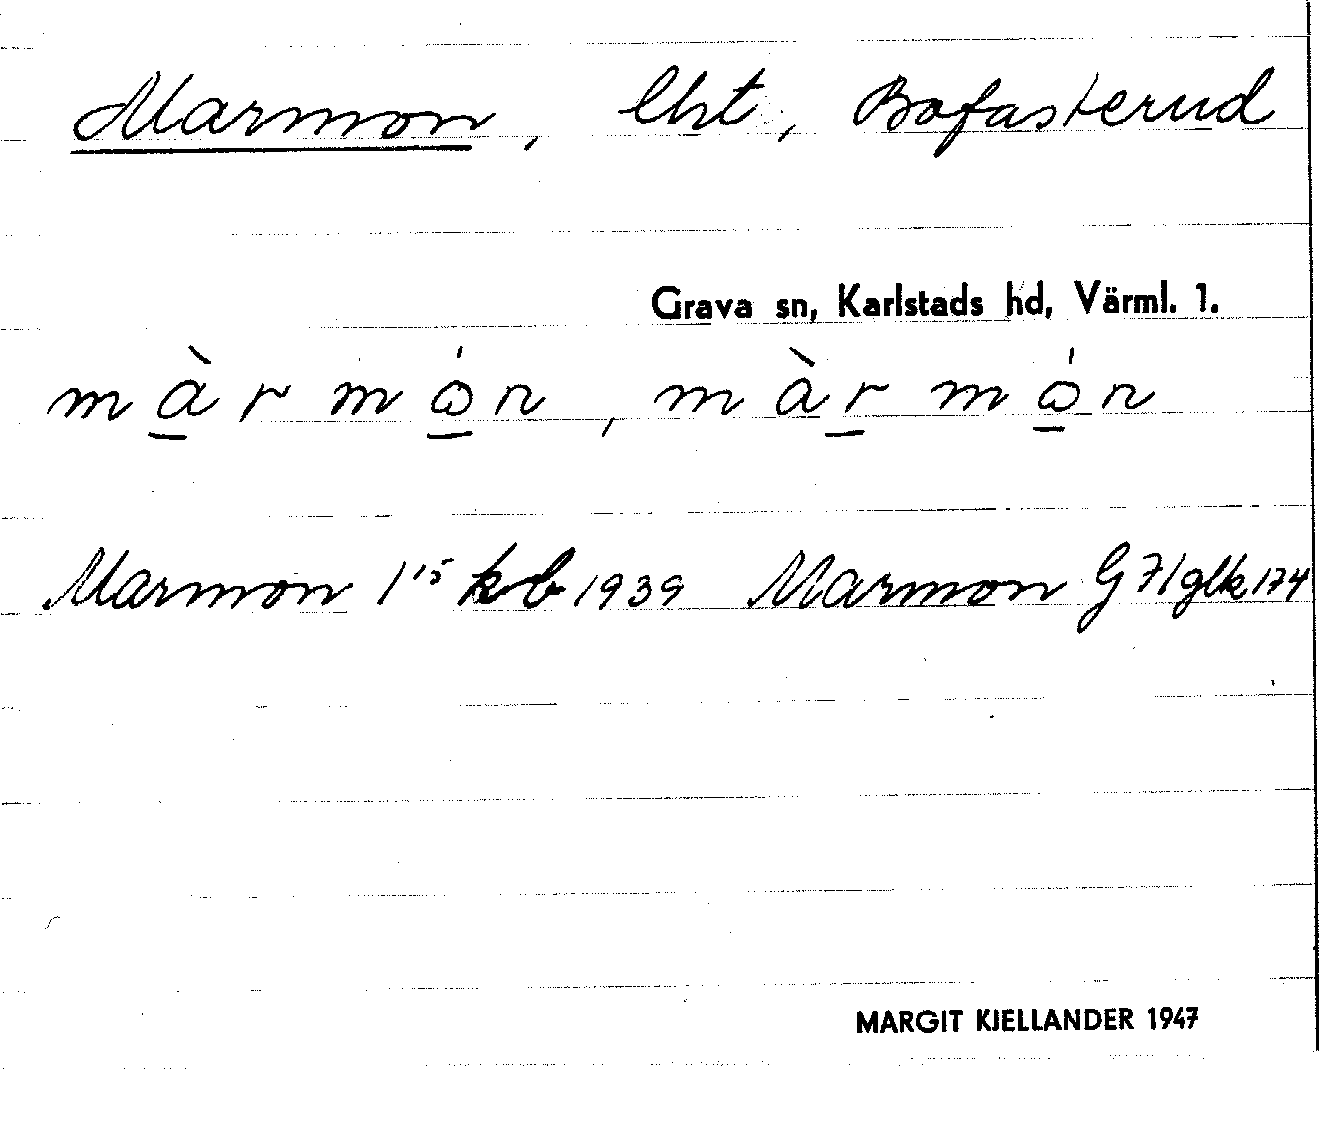 Marmon, lht, Bofasterud
Grava sn, Karlstads hd, Värml. 1.
màrmón, màrmón
Marmon 1¹⁵ kb 1939 Marmon G 71 glk 174
MARGIT KJELLANDER 1947